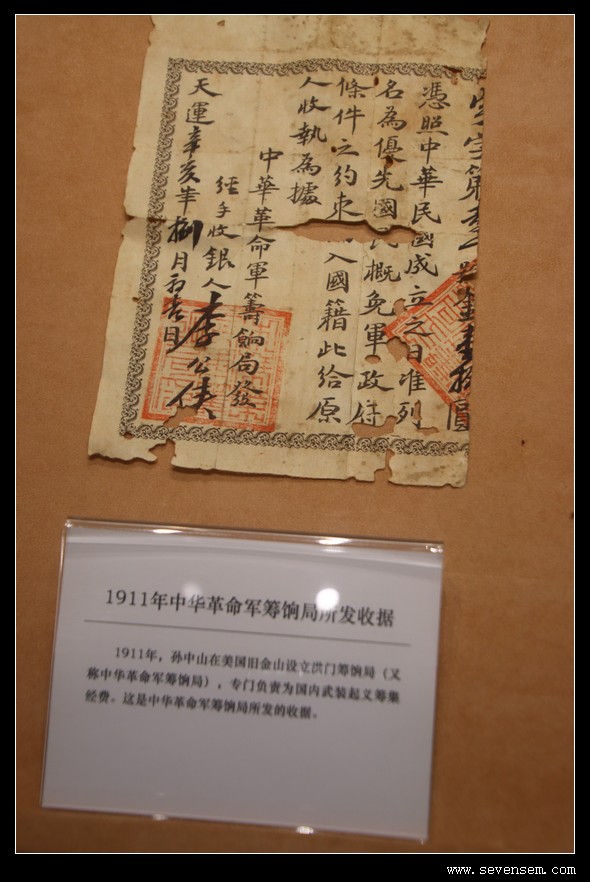 字第
號
圓
憑照中華民國成立之日准列
名為優先國民概免軍政府
條件之約束入國籍此給原
人收執為據
中華革命軍籌餉局發
經手收銀人李公俠
天運辛亥年捌月日
1911年中华革命军筹饷局所发收据
1911年，孙中山在美国旧金山设立洪门筹饷局（又
称中华革命军筹饷局），专门负责为国内武装起义筹集
经费。这是中华革命军筹饷局所发的收据。
www.sevensem.com